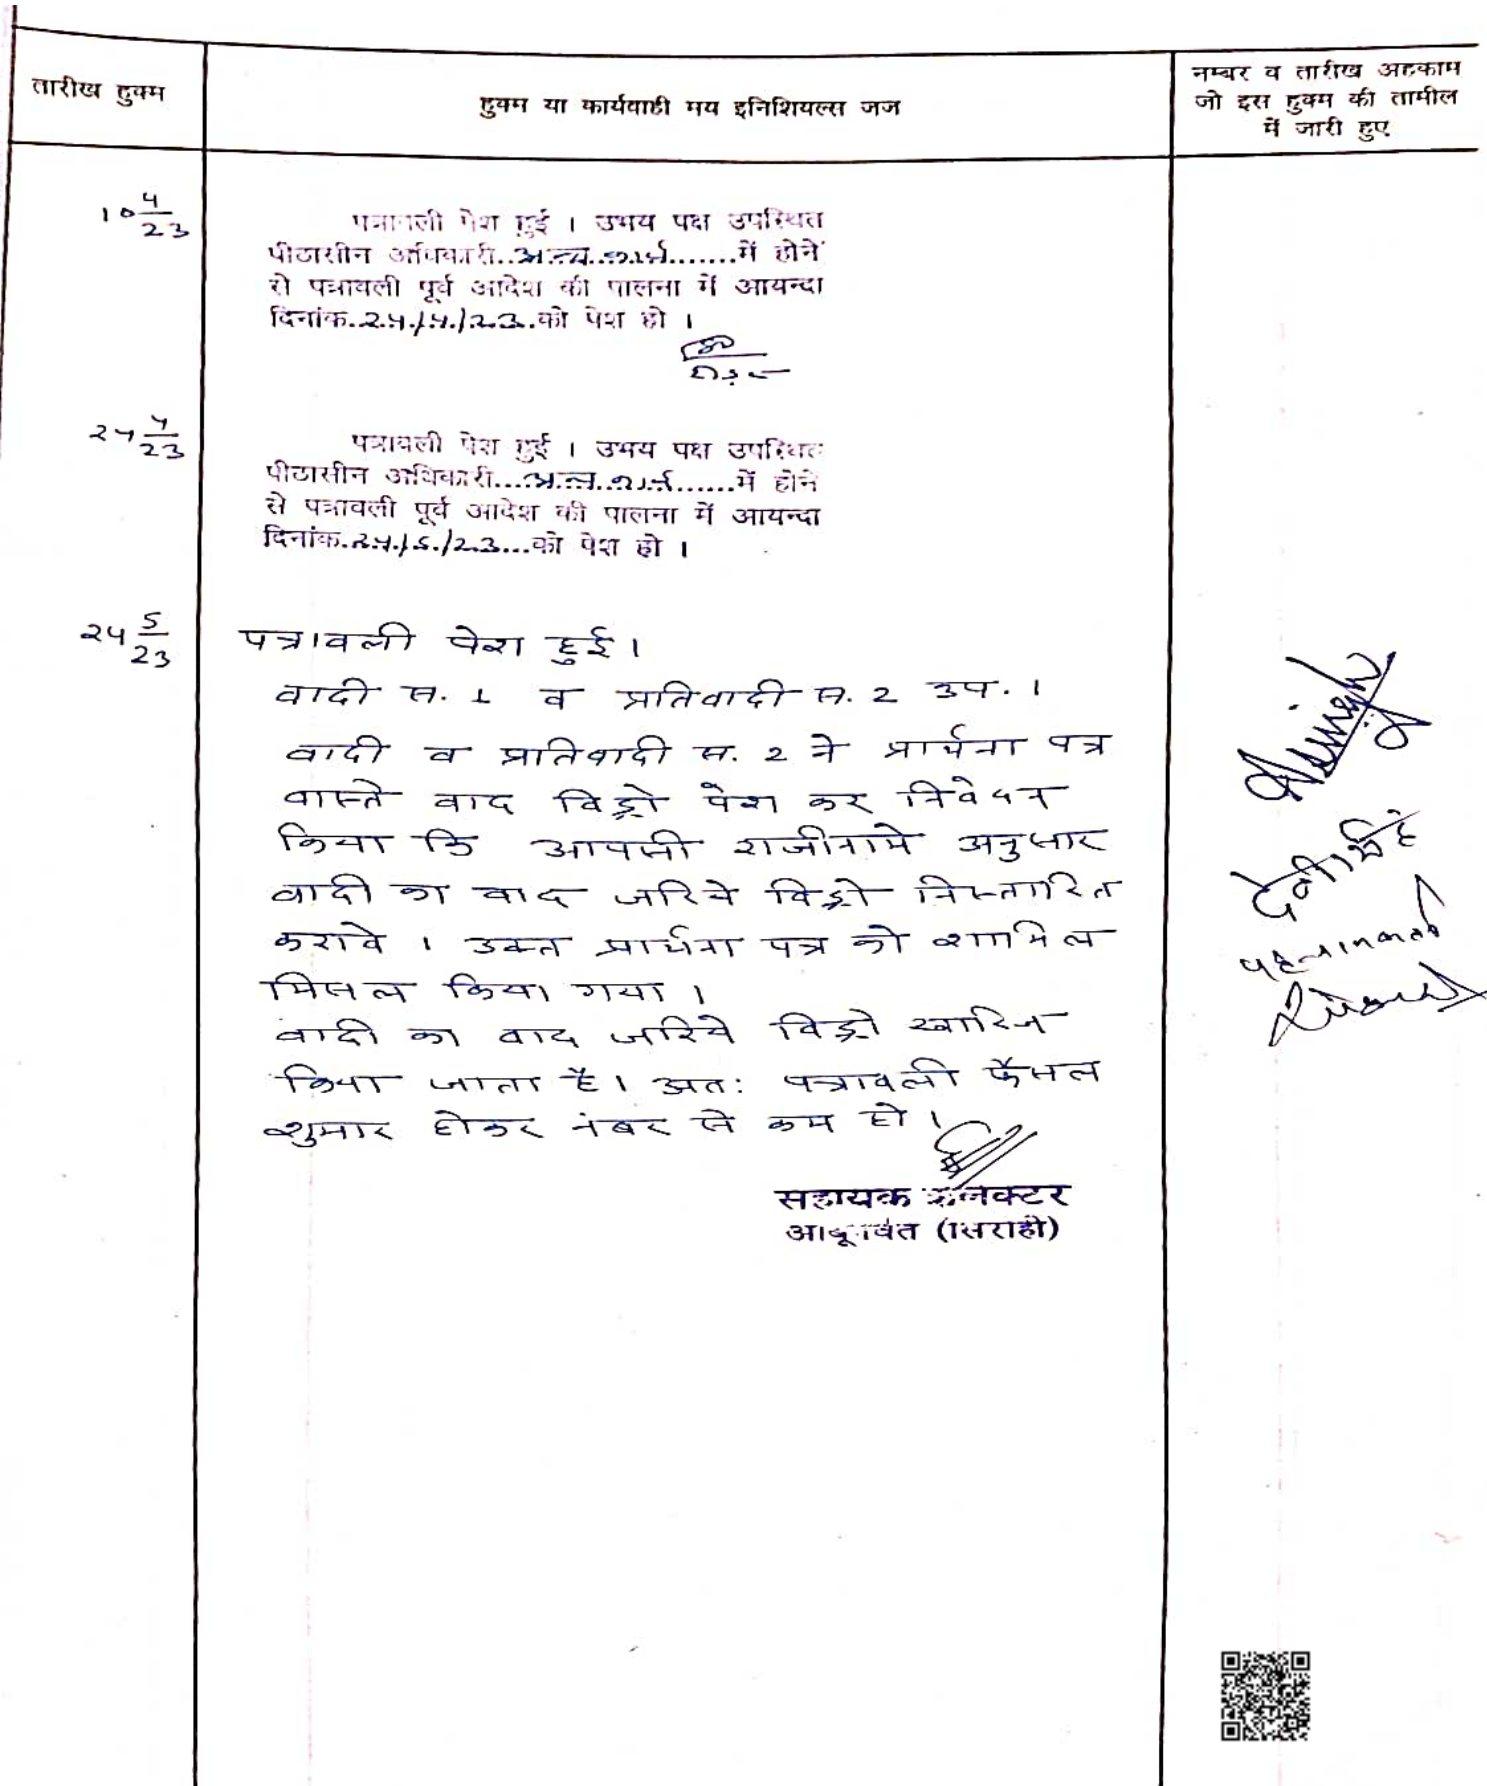 तारीख हुक्म
हुक्म या कार्यवाही मय इनिशियल्स जज
नम्बर व तारीख अहकाम
जो इस हुक्म की तामील
में जारी हुए
10 4/23
पत्रावली पेश हुई । उभय पक्ष उपस्थित
पीठासीन अधिकारी..अन्य कार्य.......में होने
से पत्रावली पूर्व आदेश की पालना में आयन्दा
दिनांक.24/4/23.को पेश हो ।
24 4/23
पत्रावली पेश हुई । उभय पक्ष उपस्थित
पीठासीन अधिकारी....अन्य कार्य......में होने
से पत्रावली पूर्व आदेश की पालना में आयन्दा
दिनांक.24/5/23...को पेश हो ।
24 5/23
पत्रावली पेश हुई।
वादी स. 1 व प्रतिवादी स. 2 उप. ।
वादी व प्रतिवादी स. 2 ने प्रार्थना पत्र
वास्ते वाद विड्रो पेश कर निवेदन
किया कि आपसी राजीनामे अनुसार
वादी का वाद जरिये विड्रो निस्तारित
करावे । उक्त प्रार्थना पत्र को शामिल
मिसल किया गया ।
वादी का वाद जरिये विड्रो खारिज
किया जाता है। अत: पत्रावली फैसल
शुमार होकर नंबर से कम हो ।
देवीसिंह
पहचानकर्ता
सहायक कलक्टर
आबूपर्वत (सिरोही)